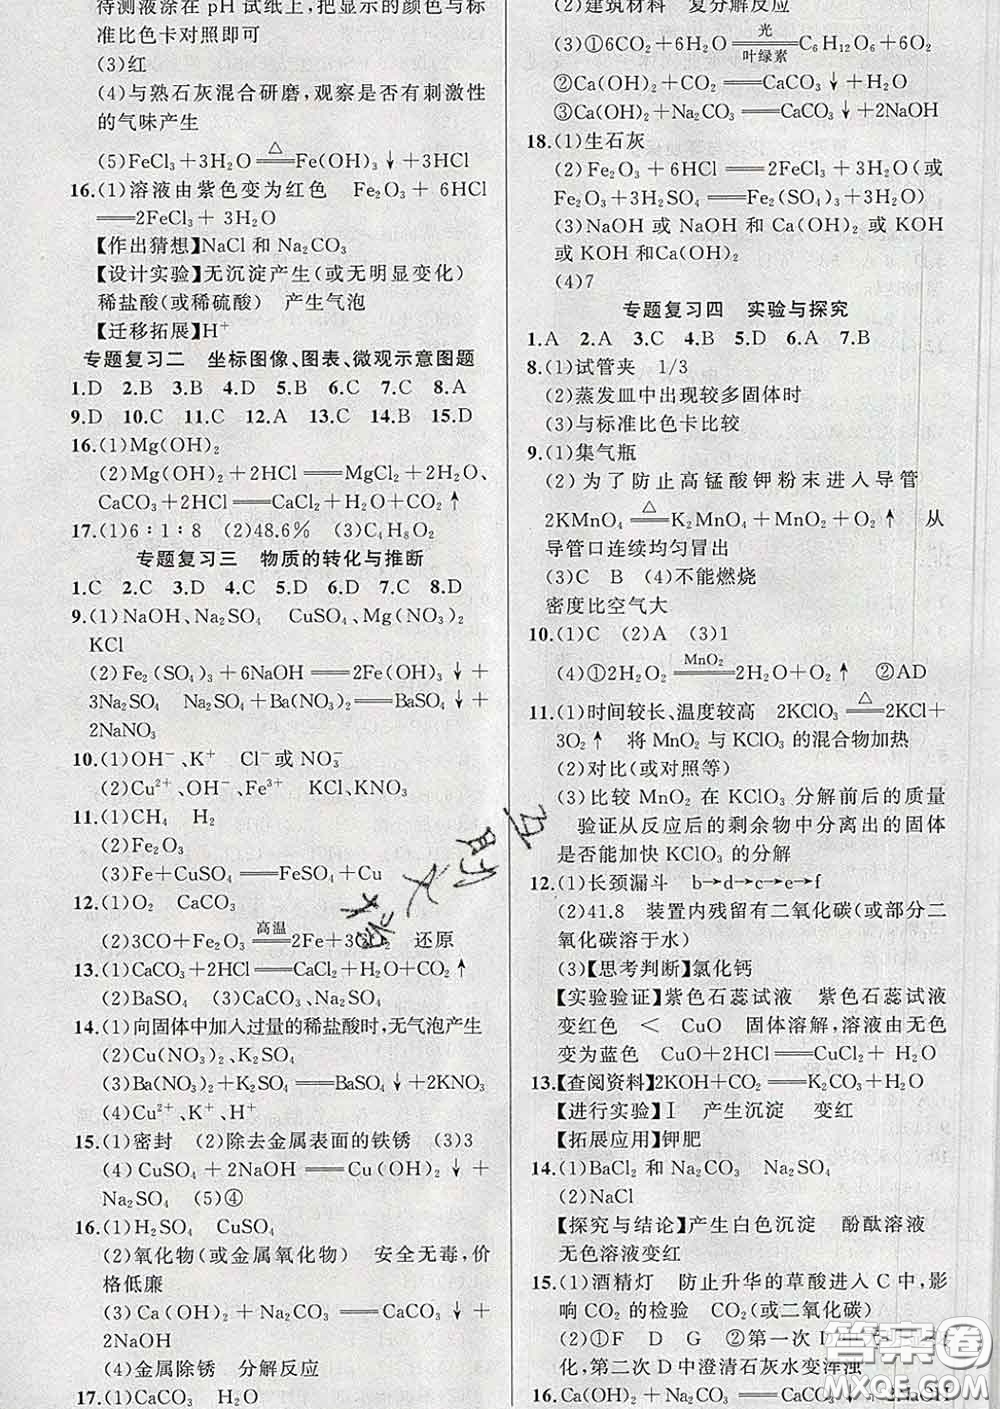 待测液涂在 pH 试纸上,把显示的颜色与标
准比色卡对照即可
(3)红
(4)与熟石灰混合研磨,观察是否有刺激性
的气味产生
(5)FeCl₃+3H₂O ══△══ Fe(OH)₃↓+3HCl
16.(1)溶液由紫色变为红色 Fe₂O₃ + 6HCl
══2FeCl₃+ 3H₂O
【作出猜想】NaCl 和 Na₂CO₃
【设计实验】无沉淀产生(或无明显变化)
稀盐酸(或稀硫酸) 产生气泡
【迁移拓展】H⁺
专题复习二 坐标图像、图表、微观示意图题
1.D 2.B 3.B 4.D 5.B 6.C 7.C 8.A
9.D 10.C 11.C 12.A 13.C 14.B 15.D
16.(1)Mg(OH)₂
(2)Mg(OH)₂+2HCl══MgCl₂+2H₂O、
CaCO₃+2HCl══CaCl₂+H₂O+CO₂↑
17.(1)6∶1∶8 (2)48.6% (3)C₄H₈O₂
专题复习三 物质的转化与推断
1.C 2.C 3.D 4.D 5.D 6.D 7.C 8.D
9.(1)NaOH、Na₂SO₄ CuSO₄、Mg(NO₃)₂
KCl
(2)Fe₂(SO₄)₃+6NaOH══2Fe(OH)₃↓+
3Na₂SO₄ Na₂SO₄+Ba(NO₃)₂══BaSO₄↓+
2NaNO₃
10.(1)OH⁻、K⁺ Cl⁻或 NO₃⁻
(2)Cu²⁺、OH⁻、Fe³⁺ KCl、KNO₃
11.(1)CH₄ H₂
(2)Fe₂O₃
(3)Fe+CuSO₄══FeSO₄+Cu
12.(1)O₂ CaCO₃
(2)3CO+Fe₂O₃ ══高温══ 2Fe+3CO₂ 还原
13.(1)CaCO₃+2HCl══CaCl₂+H₂O+CO₂↑
(2)BaSO₄ (3)CaCO₃、Na₂CO₃
14.(1)向固体中加入过量的稀盐酸时,无气泡产生
(2)Cu(NO₃)₂、K₂SO₄
(3)Ba(NO₃)₂+K₂SO₄══BaSO₄↓+2KNO₃
(4)Cu²⁺、K⁺、H⁺
15.(1)密封 (2)除去金属表面的铁锈 (3)3
(4)CuSO₄+2NaOH══Cu(OH)₂↓+
Na₂SO₄ (5)④
16.(1)H₂SO₄ CuSO₄
(2)氧化物(或金属氧化物) 安全无毒,价
格低廉
(3)Ca(OH)₂+Na₂CO₃══CaCO₃↓+
2NaOH
(4)金属除锈 分解反应
17.(1)CaCO₃ H₂O
(2)建筑材料 复分解反应
(3)①6CO₂+6H₂O ══光/叶绿素══ C₆H₁₂O₆+6O₂
②Ca(OH)₂+CO₂══CaCO₃↓+H₂O
③Ca(OH)₂+Na₂CO₃══CaCO₃↓+2NaOH
18.(1)生石灰
(2) Fe₂O₃+6HCl══2FeCl₃+3H₂O(或
Fe₂O₃+3H₂SO₄══Fe₂(SO₄)₃+3H₂O)
(3)NaOH 或 NaOH 和 Ca(OH)₂ 或 KOH
或 KOH 和Ca(OH)₂
(4)7
专题复习四 实验与探究
1.A 2.A 3.C 4.B 5.D 6.A 7.B
8.(1)试管夹 1/3
(2)蒸发皿中出现较多固体时
(3)与标准比色卡比较
9.(1)集气瓶
(2)为了防止高锰酸钾粉末进入导管
2KMnO₄ ══△══ K₂MnO₄+MnO₂+O₂↑ 从
导管口连续均匀冒出
(3)C B (4)不能燃烧
密度比空气大
10.(1)C (2)A (3)1
(4)①2H₂O₂ ══MnO₂══ 2H₂O+O₂↑ ②AD
11.(1)时间较长、温度较高 2KClO₃ ══△══ 2KCl+
3O₂↑ 将 MnO₂ 与 KClO₃ 的混合物加热
(2)对比(或对照等)
(3)比较 MnO₂ 在 KClO₃ 分解前后的质量
验证从反应后的剩余物中分离出的固体
是否能加快 KClO₃ 的分解
12.(1)长颈漏斗 b→d→c→e→f
(2)41.8 装置内残留有二氧化碳(或部分二
氧化碳溶于水)
(3)【思考判断】氯化钙
【实验验证】紫色石蕊试液 紫色石蕊试液
变红色 < CuO 固体溶解,溶液由无色
变为蓝色 CuO+2HCl══CuCl₂+ H₂O
13.【查阅资料】2KOH+CO₂══K₂CO₃+H₂O
【进行实验】Ⅰ 产生沉淀 变红
【拓展应用】钾肥
14.(1)BaCl₂ 和 Na₂CO₃ Na₂SO₄
(2)NaCl
【探究与结论】产生白色沉淀 酚酞溶液
无色溶液变红
15.(1)酒精灯 防止升华的草酸进入 C 中,影
响 CO₂ 的检验 CO₂(或二氧化碳)
(2)①F D G ②第一次 D 中无
化,第二次 D 中澄清石灰水变浑浊
16.Ca(OH)₂+Na₂CO₃══CaCO₃↓+2NaOH
答案圈
MXQE.COM